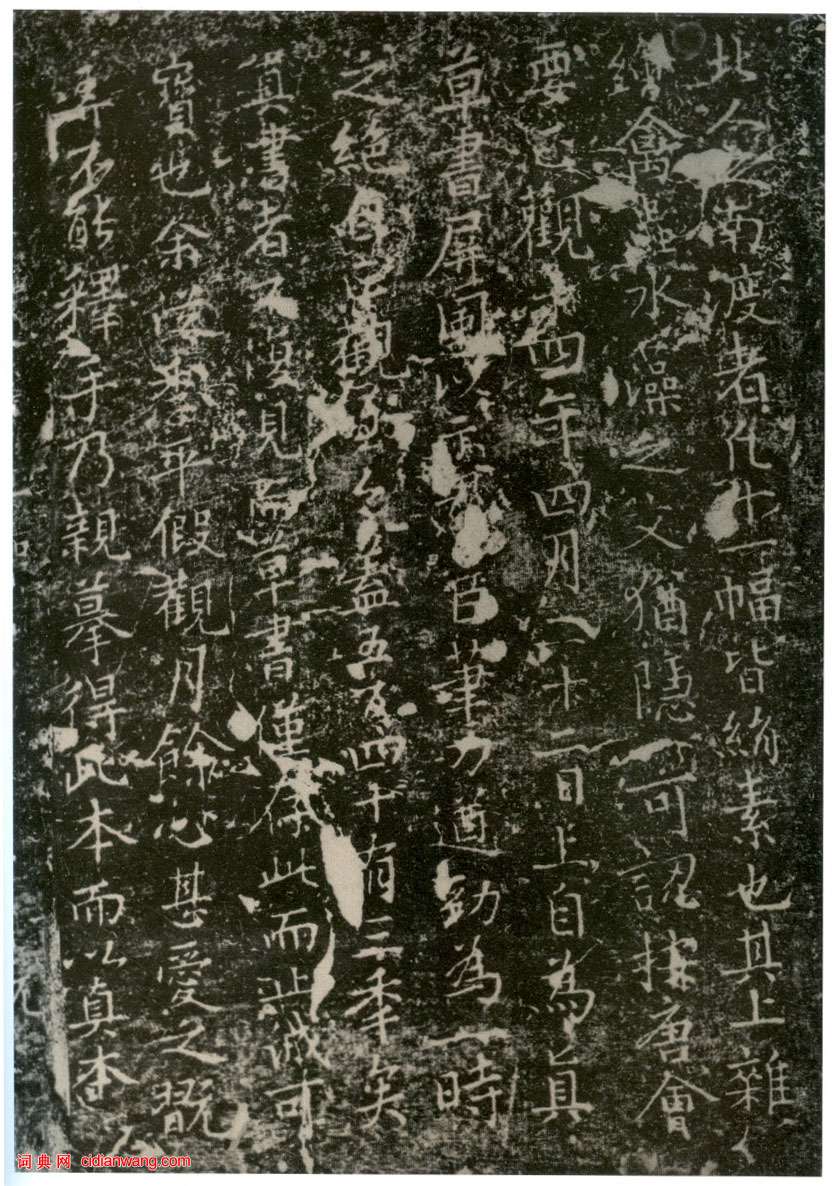 北人之南度者凡十一幅皆絹素也其上雜
繪禽魚水藻之文猶隱可認按唐會
要正觀十四年四月二十二日上自為真
草書屏風以示群臣筆力遒勁為一時
之絕正觀至今蓋五百四十有三年矣
真書者不復見而草書僅存此而止誠可
寶也余平假觀月餘心甚愛之翫
弄不能釋手乃親摹得此本而以真本
词典网 cidianwang.com